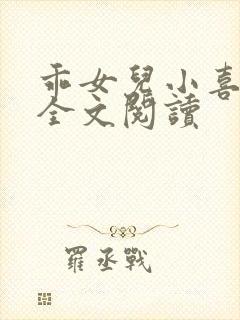 乖女兒小喜
全文閱讀
羅丞戰